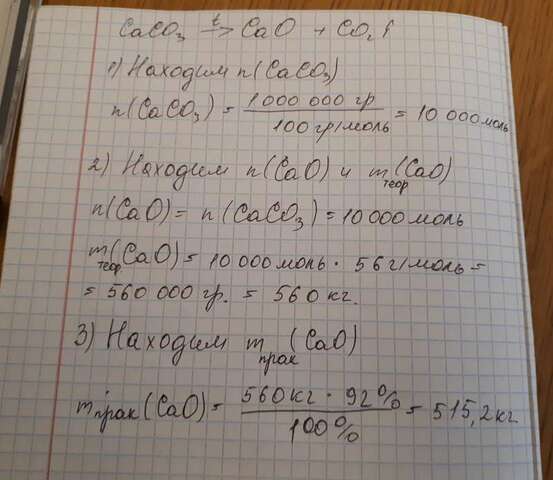 CaCO₃ —t→ CaO + CO₂↑
1) Находим n(CaCO₃)
n(CaCO₃) = 1 000 000 гр / 100 гр/моль = 10 000 моль
2) Находим n(CaO) и m теор (CaO)
n(CaO) = n(CaCO₃) = 10 000 моль
m теор. (CaO) = 10 000 моль · 56 г/моль =
= 560 000 гр. = 560 кг.
3) Находим m прак (CaO)
m прак (CaO) = 560 кг · 92% / 100% = 515,2 кг